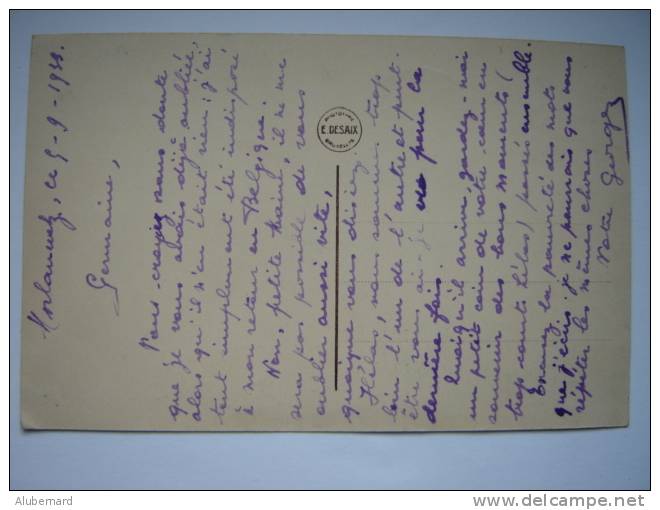 Morlanwelz, le 5-9-1933.
Germaine,
Vous croyez sans doute
que je vous avais déjà oubliée,
alors qu'il n'en était rien; j'ai
tout simplement été indisposé
à mon retour en Belgique.
Non, petite , il ne me
sera pas possible de vous
oublier aussi vite,
quoique vous disiez.
Hélas, nous sommes trop
loin l'un de l'autre et peut-
être vous ai-je vue pour la
dernière fois.
Quoiqu'il arrive, gardez-moi
un petit coin de votre cœur en
souvenir des bons moments (
trop courts hélas) passés ensemble.
Excusez la pauvreté des mots
que j'écris: je ne pourrais que vous
répéter les mêmes choses
Votre Georges
PHOTOTYPIE
E. DESAIX
BRUXELLES
Alubemard
delcampe.net